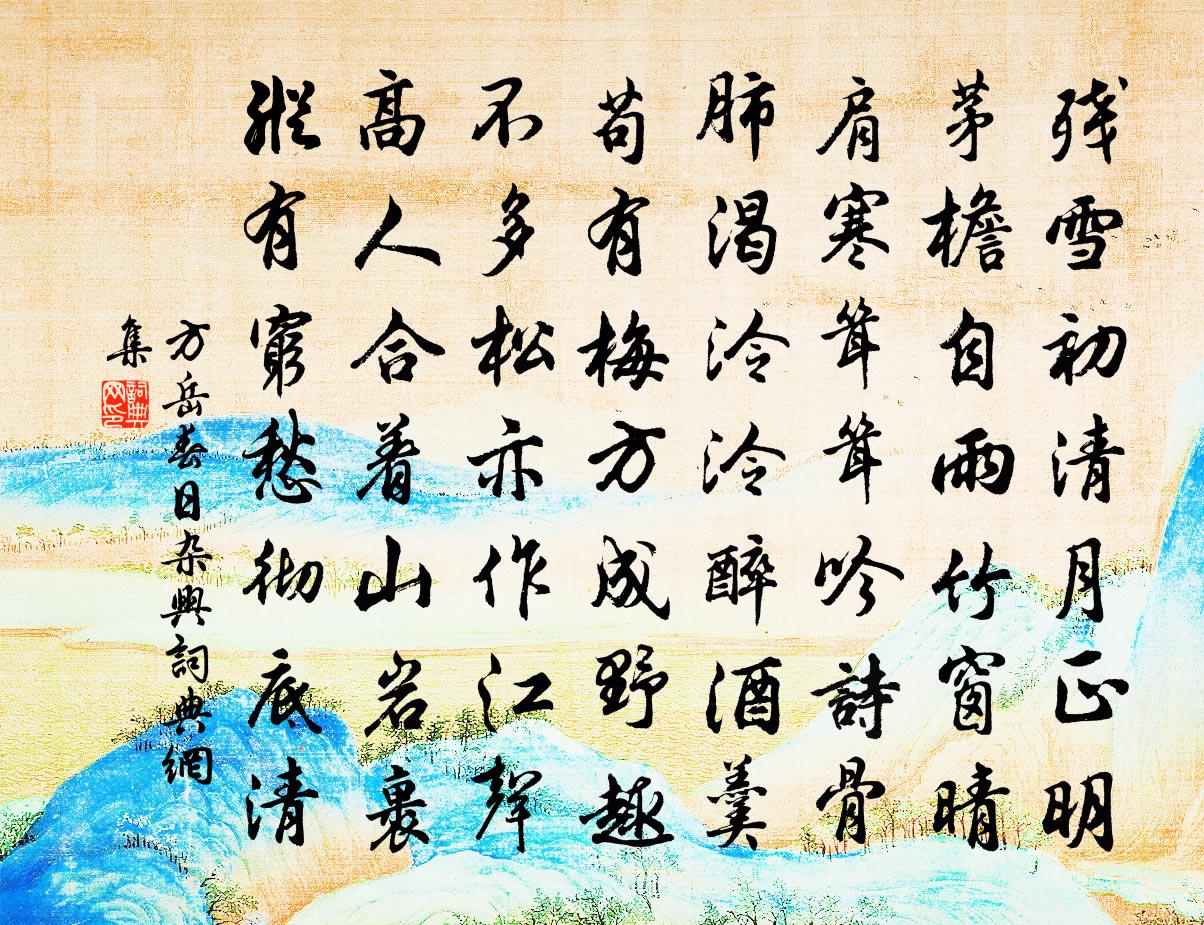 残雪初清月正明
茅檐自雨竹窗晴
肩寒耸耸吟詩骨
肺渴泠泠醉酒羹
苟有梅方成野趣
不多松亦作江聲
高人合着山岩裏
縱有窮愁彻底清
方岳春日杂興詞典網
集
詞典网印